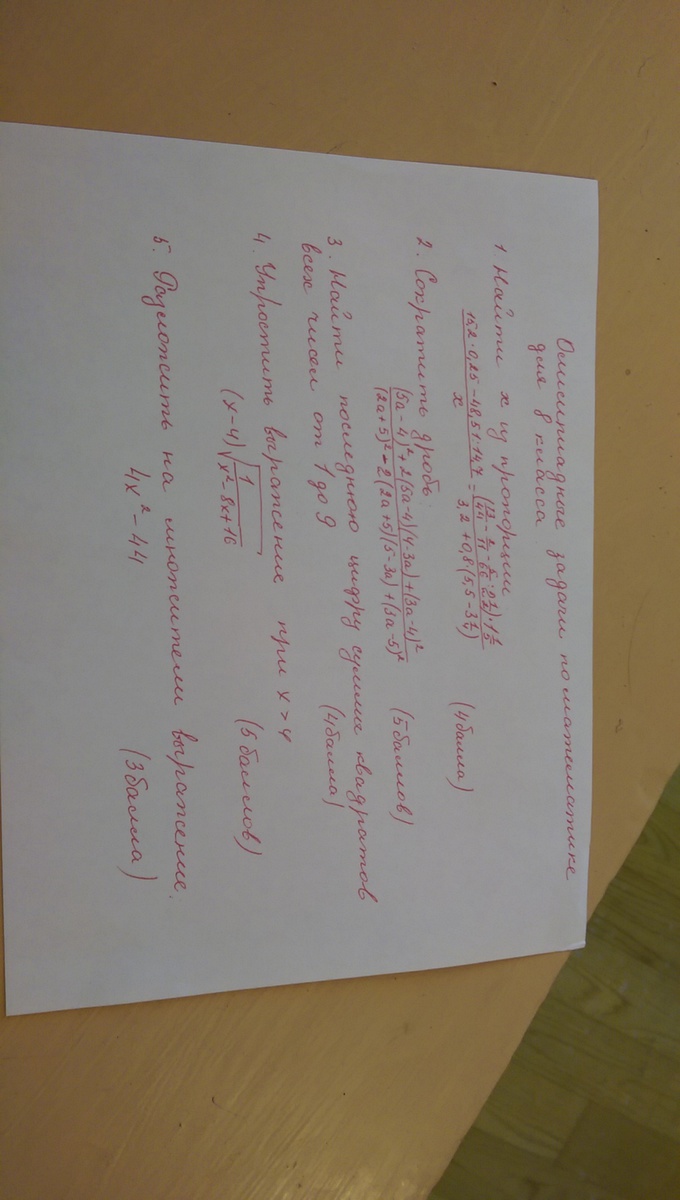 Олимпиадные задачи по математике
для 8 класса.
1. Найти x из пропорции
(15,2 · 0,25 - 48,51 : 14,7) / x = ((13/44 - 2/11 - 5/66 : 2 1/2) · 1 1/5) / (3,2 + 0,8 · (5,5 - 3 1/4)) (4 балла)
2. Сократить дробь:
((5a-4)² + 2(5a-4)(4-3a) + (3a-4)²) / ((2a+5)² - 2(2a+5)(5-3a) + (3a-5)²) (5 баллов)
3. Найти последнюю цифру суммы квадратов
всех чисел от 1 до 9 (4 балла)
4. Упростить выражение при x > 4
(x-4)√(1/(x²-8x+16)) (5 баллов)
5. Разложить на множители выражение.
4x² - 44 (3 балла)